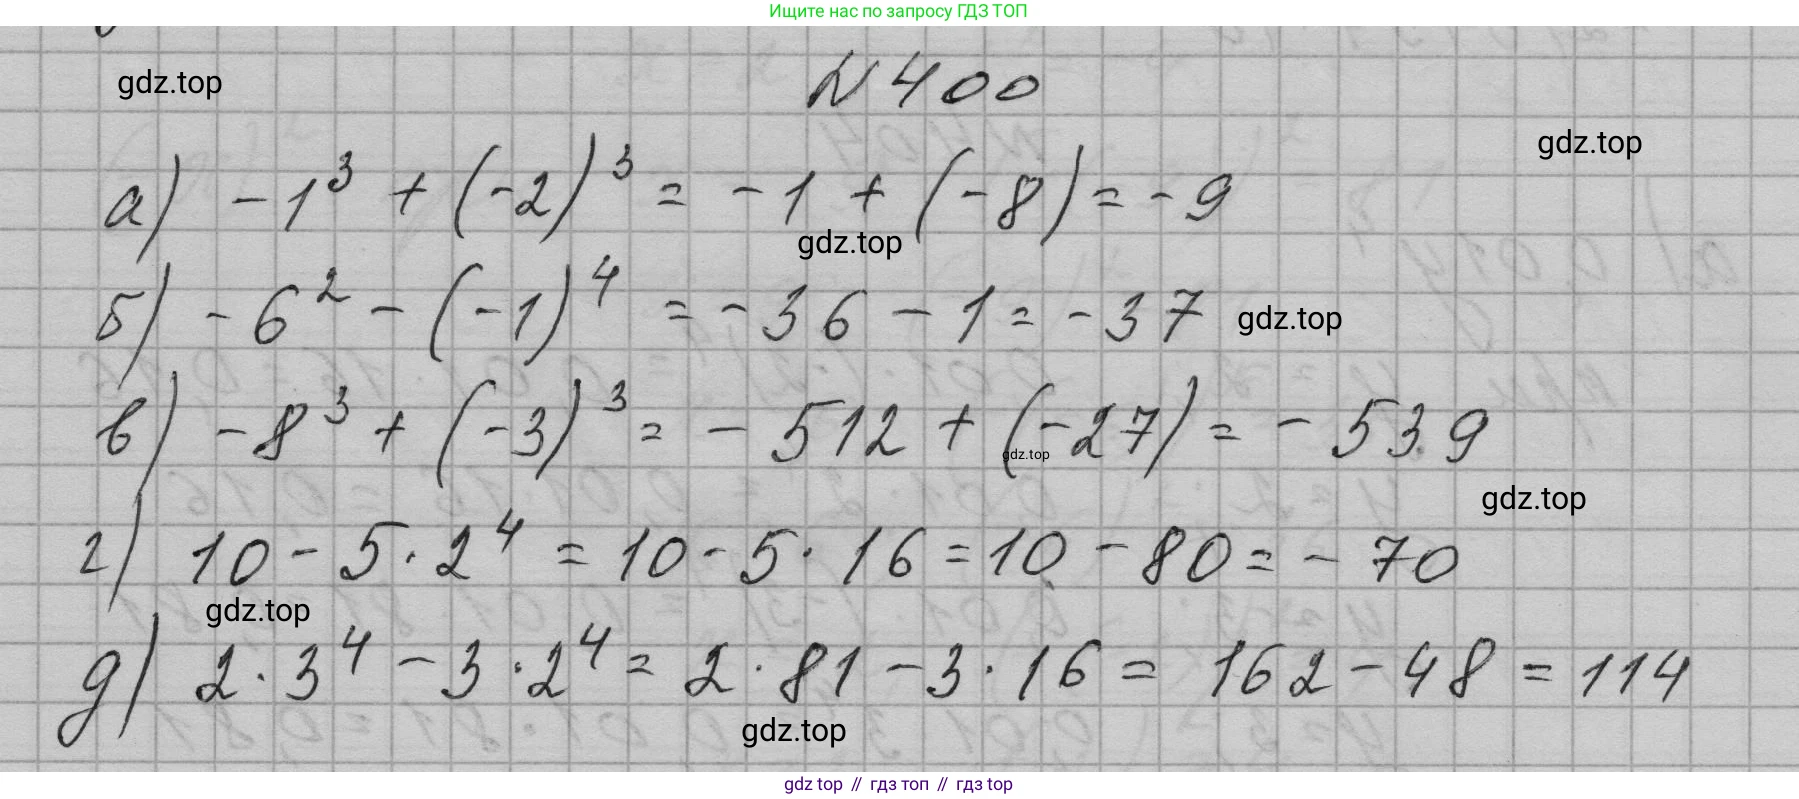 Ищите нас по запросу ГДЗ ТОП
gdz.top
N 400
gdz.top
а) -1³ + (-2)³ = -1 + (-8) = -9
gdz.top
б) -6² - (-1)⁴ = -36 - 1 = -37
gdz.top
в) -8³ + (-3)³ = -512 + (-27) = -539
gdz.top
gdz.top
г) 10 - 5 · 2⁴ = 10 - 5 · 16 = 10 - 80 = -70
gdz.top
д) 2 · 3⁴ - 3 · 2⁴ = 2 · 81 - 3 · 16 = 162 - 48 = 114
gdz.top
gdz top // гдз топ // гдз top